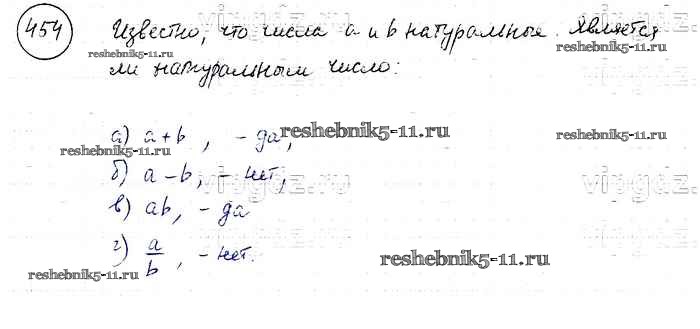 454 Известно, что числа a и b натуральные. Является
ли натуральным число:
а) a+b, - да,
б) a-b, - нет,
в) ab, - да
г) a/b, - нет.
reshebnik5-11.ru
reshebnik5-11.ru
reshebnik5-11.ru
reshebnik5-11.ru
reshebnik5-11.ru
reshebnik5-11.ru
reshebnik5-11.ru